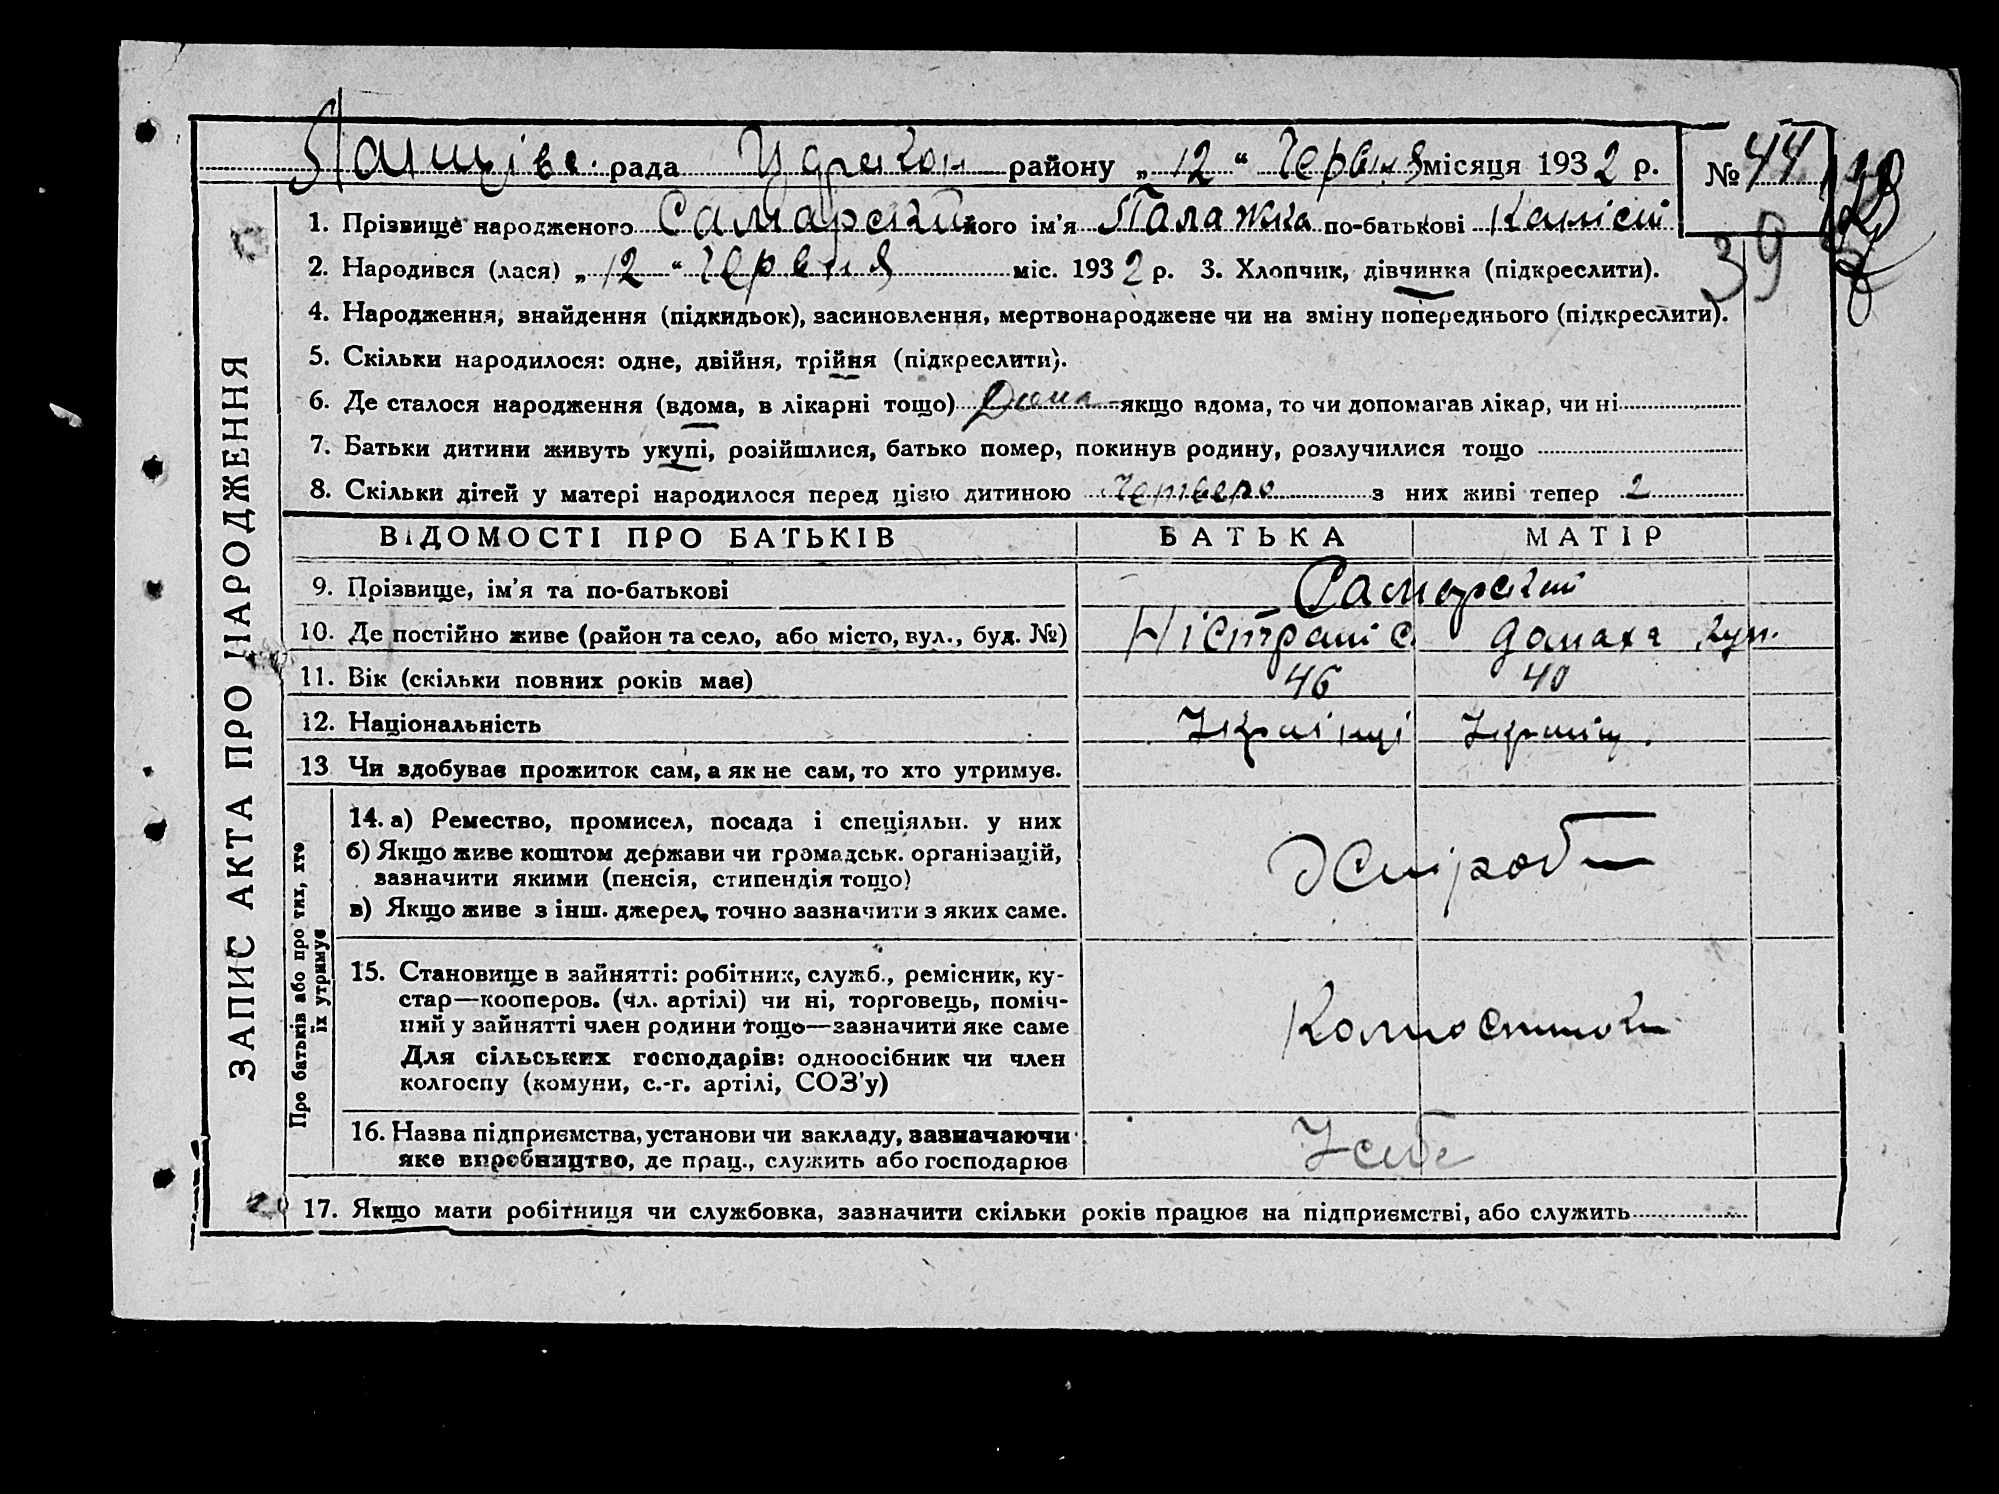 рада району „ 12 “ Червня місяця 1932 р. № 44
39
ЗАПИС АКТА ПРО НАРОДЖЕННЯ
1. Прізвище народженого Самарський його ім’я Палажка по-батькові
2. Народився (лася) „ 12 “ Червня міс. 1932 р. 3. Хлопчик, дівчинка (підкреслити).
4. Народження, знайдення (підкидьок), засиновлення, мертвонароджене чи на зміну попереднього (підкреслити).
5. Скільки народилося: одне, двійня, трійня (підкреслити).
6. Де сталося народження (вдома, в лікарні тощо) Дома якщо вдома, то чи допомагав лікар, чи ні
7. Батьки дитини живуть укупі, розійшлися, батько помер, покинув родину, розлучилися тощо
8. Скільки дітей у матері народилося перед цією дитиною Четверо з них живі тепер 2
ВІДОМОСТІ ПРО БАТЬКІВ БАТЬКА МАТІР
9. Прізвище, ім’я та по-батькові Самарский
10. Де постійно живе (район та село, або місто, вул., буд. №) Домаха
11. Вік (скільки повних років має) 46 40
12. Національність
13 Чи здобуває прожиток сам, а як не сам, то хто утримує.
Про батьків або про тих, хто
їх утримує
14. а) Ремество, промисел, посада і спеціяльн. у них
б) Якщо живе коштом держави чи громадськ. організацій,
зазначити якими (пенсія, стипендія тощо)
в) Якщо живе з інш. джерел, точно зазначити з яких саме.
15. Становище в зайнятті: робітник, служб., ремісник, ку-
стар—кооперов. (чл. артілі) чи ні, торговець, поміч-
ний у зайнятті член родини тощо—зазначити яке саме
Для сільських господарів: одноосібник чи член
колгоспу (комуни, с.-г. артілі, СОЗ’у)
16. Назва підприємства, установи чи закладу, зазначаючи
яке виробництво, де прац., служить або господарює У себе
17. Якщо мати робітниця чи службовка, зазначити скільки років працює на підприємстві, або служить